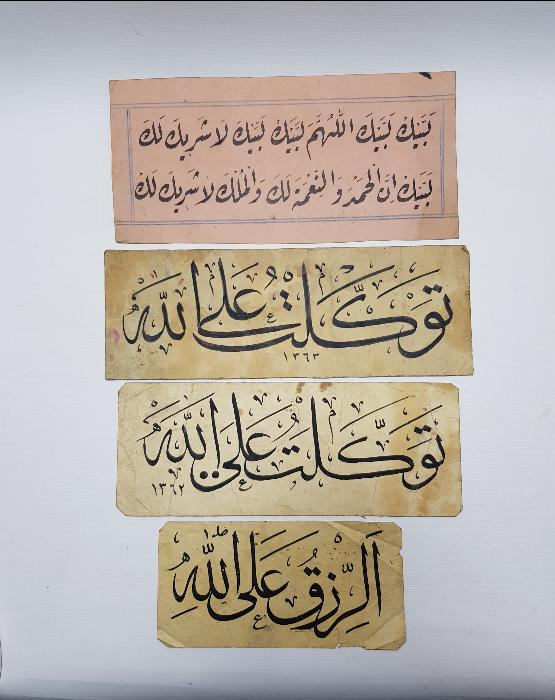 لَبَّيْكَ لَبَّيْكَ اَللّٰهُمَّ لَبَّيْكَ لَبَّيْكَ لَا شَرِيكَ لَكَ
لَبَّيْكَ اِنَّ الْحَمْدَ وَالنِّعْمَةَ لَكَ وَالْمُلْكَ لَا شَرِيكَ لَكَ
تَوَكَّلْتُ عَلَى اللّٰهِ
١٣٦٣
تَوَكَّلْتُ عَلَى اللّٰهِ
١٣٦٢
اَلرِّزْقُ عَلَى اللّٰهِ